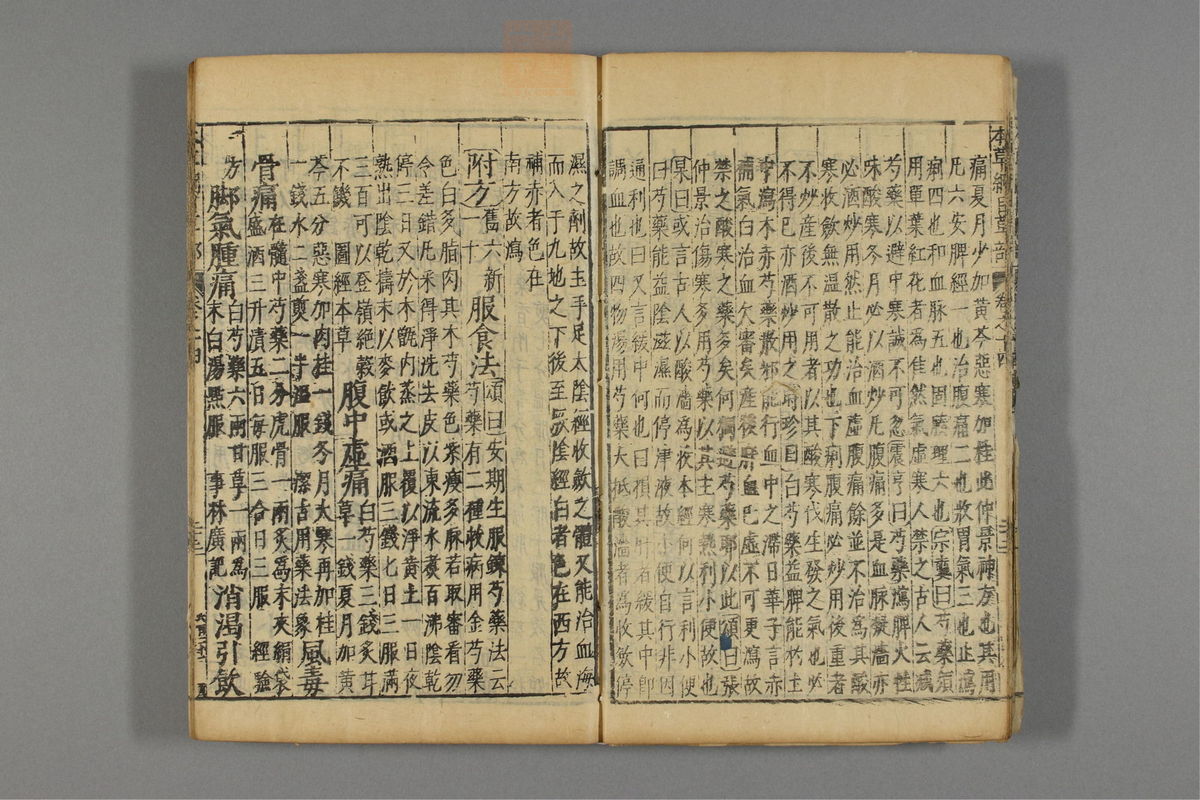 本草綱目草部 卷之十四
痛夏月少加黃芩惡寒加桂此仲景神方也其用
凡六安脾經一也治腹痛二也收胃氣三也止瀉
痢四也和血脉五也固腠理六也宗奭曰芍藥須
用單葉紅花者為佳然氣虛寒人禁之古人云減
芍藥以避中寒誠不可忽震亨曰芍藥瀉脾火性
味酸寒冬月必以酒炒凡腹痛多是血脉凝濇亦
必酒炒用然止能治血虛腹痛餘並不治為其酸
寒收歛無温散之功也下痢腹痛必炒用後重者
不炒産後不可用者以其酸寒伐生發之氣也必
不得已亦酒炒用之時珍曰白芍藥益脾能於土
中瀉木赤芍藥散邪能行血中之滯日華子言赤
補氣白治血欠審矣產後肝血已虛不可更瀉故
禁之酸寒之藥多矣何獨避芍藥耶以此頌曰張
仲景治傷寒多用芍藥以其主寒熱利小便故也
杲曰或言古人以酸濇為收本經何以言利小便
曰芍藥能益陰滋濕而停津液故小便自行非因
通利也曰又言緩中何也曰損其肝者緩其中即
調血也故四物湯用芍藥大抵酸濇者為收歛停
濕之劑故主手足太陰經收歛之體又能治血海
而入于九地之下後至厥陰經白者色在西方故
補赤者色在
南方故瀉
附方 舊六新一十 服食法 頌曰安期生服鍊芍藥法云
芍藥有二種救病用金芍藥
色白多脂肉其木芍藥色紫瘦多脉若取審看勿
令差錯凡采得淨洗去皮以東流水煑百沸陰乾
停三日又於木甑内蒸之上覆以淨黃土一日夜
熟出陰乾擣末以麥飲或酒服三錢匕日三服滿
三百可以登嶺絶穀
不饑 圖經本草 腹中虛痛 白芍藥三錢炙甘
草一錢夏月加黃
芩五分惡寒加肉桂一錢冬月大寒再加桂
一錢水二盞煎一半温服 潔古用藥法象 風毒
骨痛 在髓中芍藥二分虎骨一兩炙為末夾絹袋
盛酒三升漬五日每服三合日三服 經驗
方 脚氣腫痛 白芍藥六兩甘草一兩為
末白湯點服 事林廣記 消渴引飲